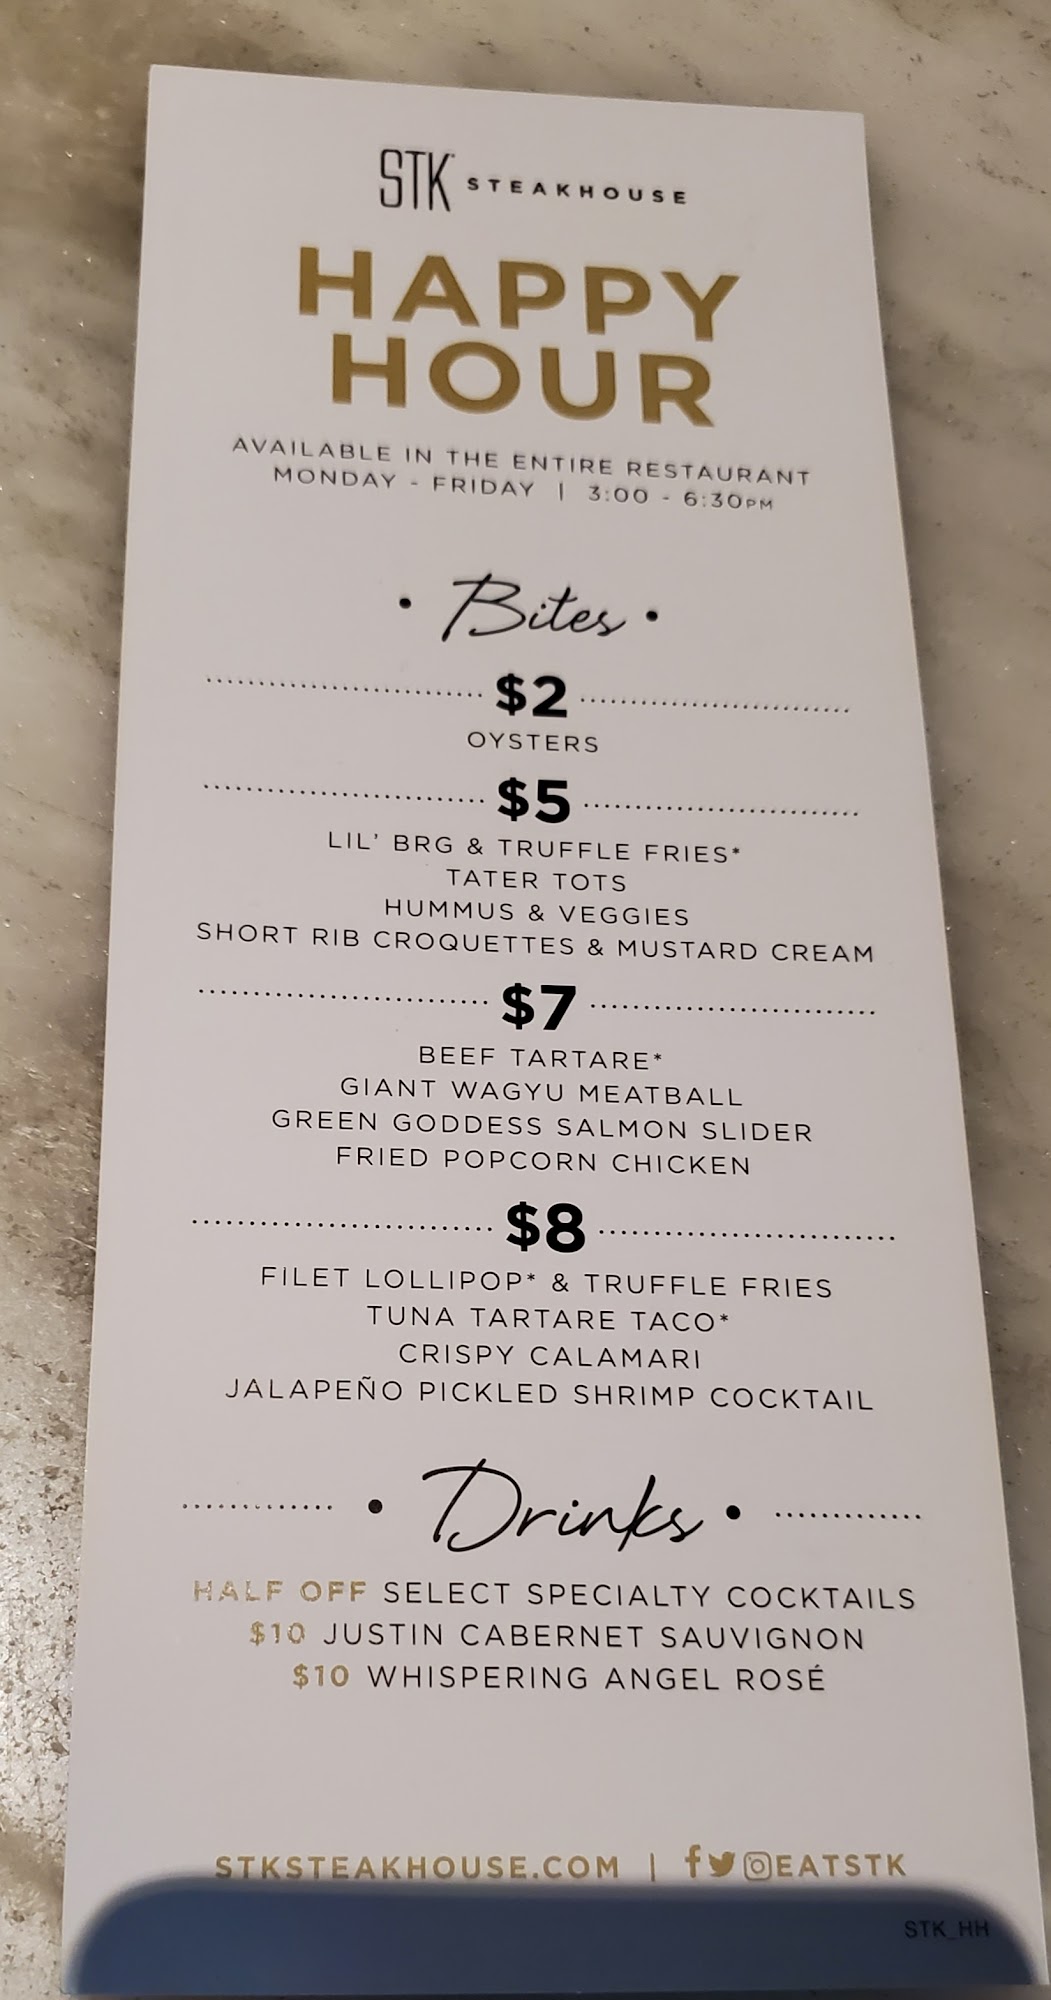 STK STEAKHOUSE
HAPPY
HOUR
AVAILABLE IN THE ENTIRE RESTAURANT
MONDAY - FRIDAY | 3:00 - 6:30PM
• Bites •
$2
OYSTERS
$5
LIL' BRG & TRUFFLE FRIES*
TATER TOTS
HUMMUS & VEGGIES
SHORT RIB CROQUETTES & MUSTARD CREAM
$7
BEEF TARTARE*
GIANT WAGYU MEATBALL
GREEN GODDESS SALMON SLIDER
FRIED POPCORN CHICKEN
$8
FILET LOLLIPOP* & TRUFFLE FRIES
TUNA TARTARE TACO*
CRISPY CALAMARI
JALAPEÑO PICKLED SHRIMP COCKTAIL
• Drinks •
HALF OFF SELECT SPECIALTY COCKTAILS
$10 JUSTIN CABERNET SAUVIGNON
$10 WHISPERING ANGEL ROSÉ
STKSTEAKHOUSE.COM | f EATSTK
STK_HH